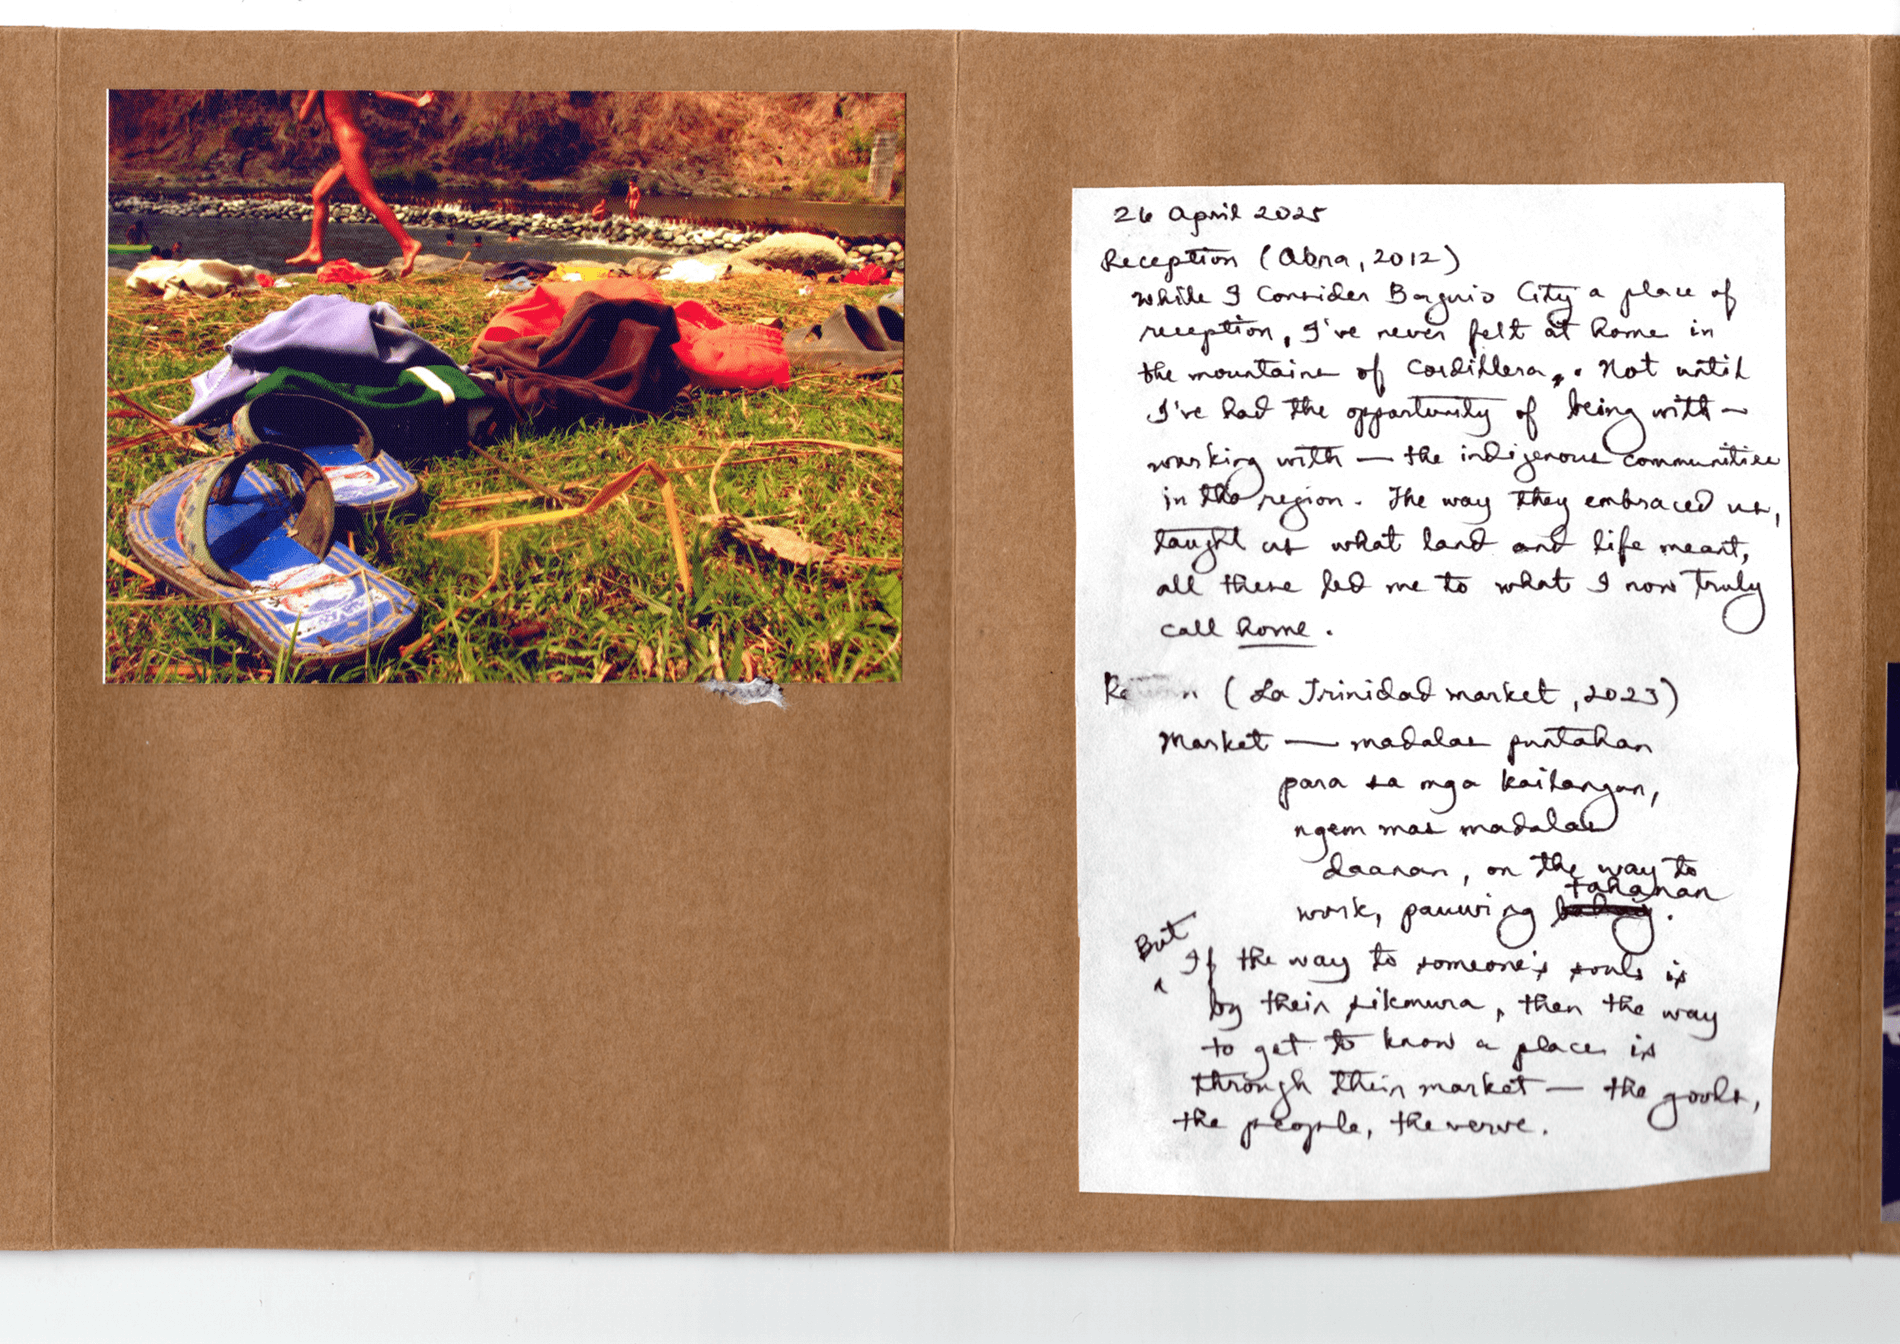 26 April 2025
Reception (Abra, 2012)
While I consider Baguio City a place of
reception, I've never felt at home in
the mountains of Cordillera. Not until
I've had the opportunity of being with —
working with — the indigenous communities
in the region. The way they embraced us,
taught us what land and life meant,
all these led me to what I now truly
call home.
(La Trinidad market, 2023)
Market — madalas puntahan
para sa mga kailangan,
ngem mas madalas
daanan, on the way to
work, pauwing tahanan.
But If the way to someone's souls is
by their sikmura, then the way
to get to know a place is
through their market — the goods,
the people, the verve.